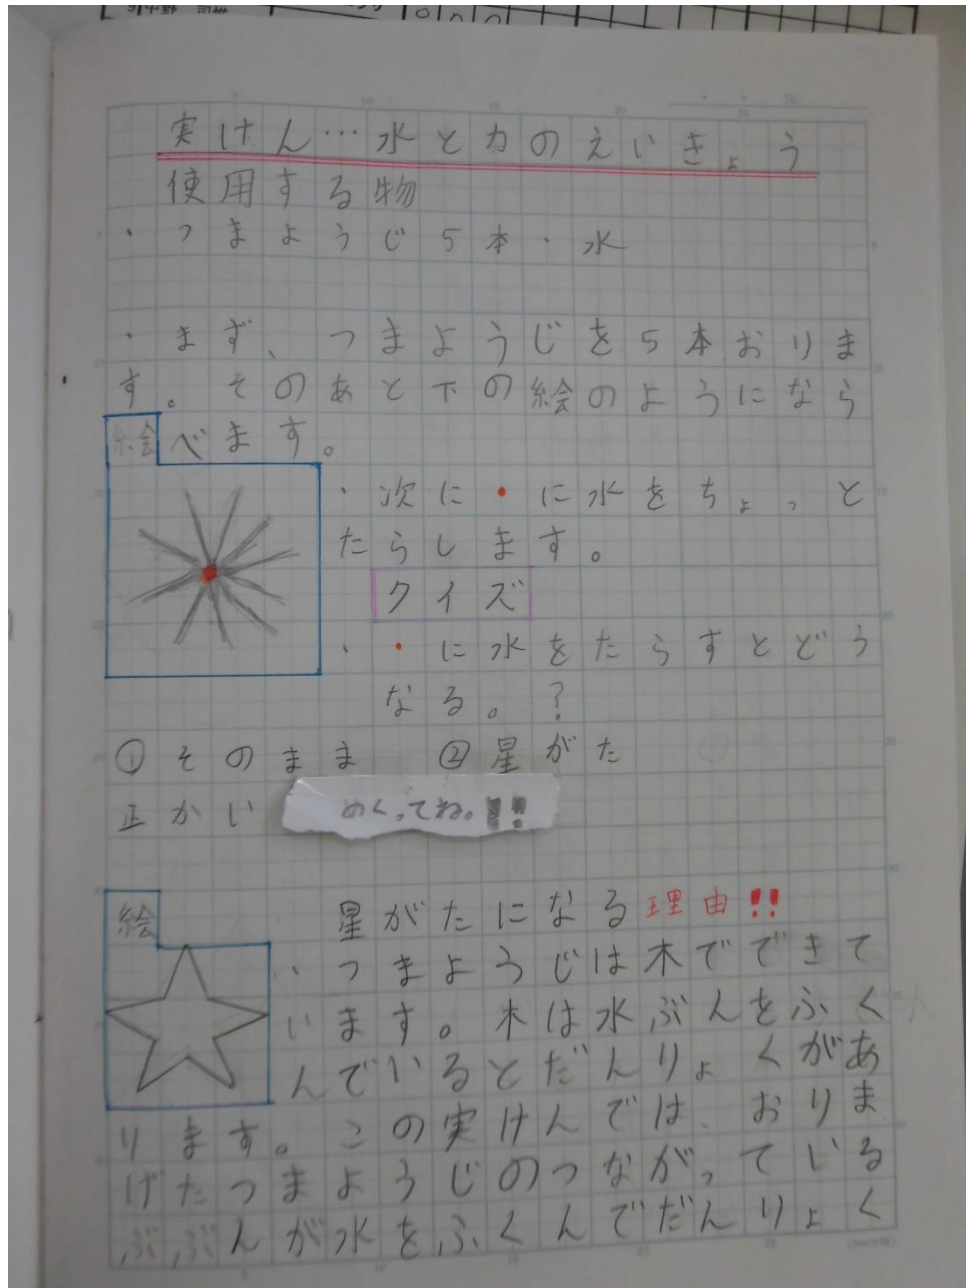 実けん…水と力のえいきょう
使用する物
・つまようじ5本・水
・まず、つまようじを5本おりま
す。そのあと下の絵のようになら
べます。
絵
・次に・に水をちょっと
たらします。
クイズ
・・に水をたらすとどう
なる。?
①そのまま ②星がた
正かい めくってね。!!
絵
星がたになる理由!!
・つまようじは木でできて
います。木は水ぶんをふく
んでいるとだんりょくがあ
ります。この実けんでは、おりま
げたつまようじのつながっている
ぶぶんが水をふくんでだんりょく